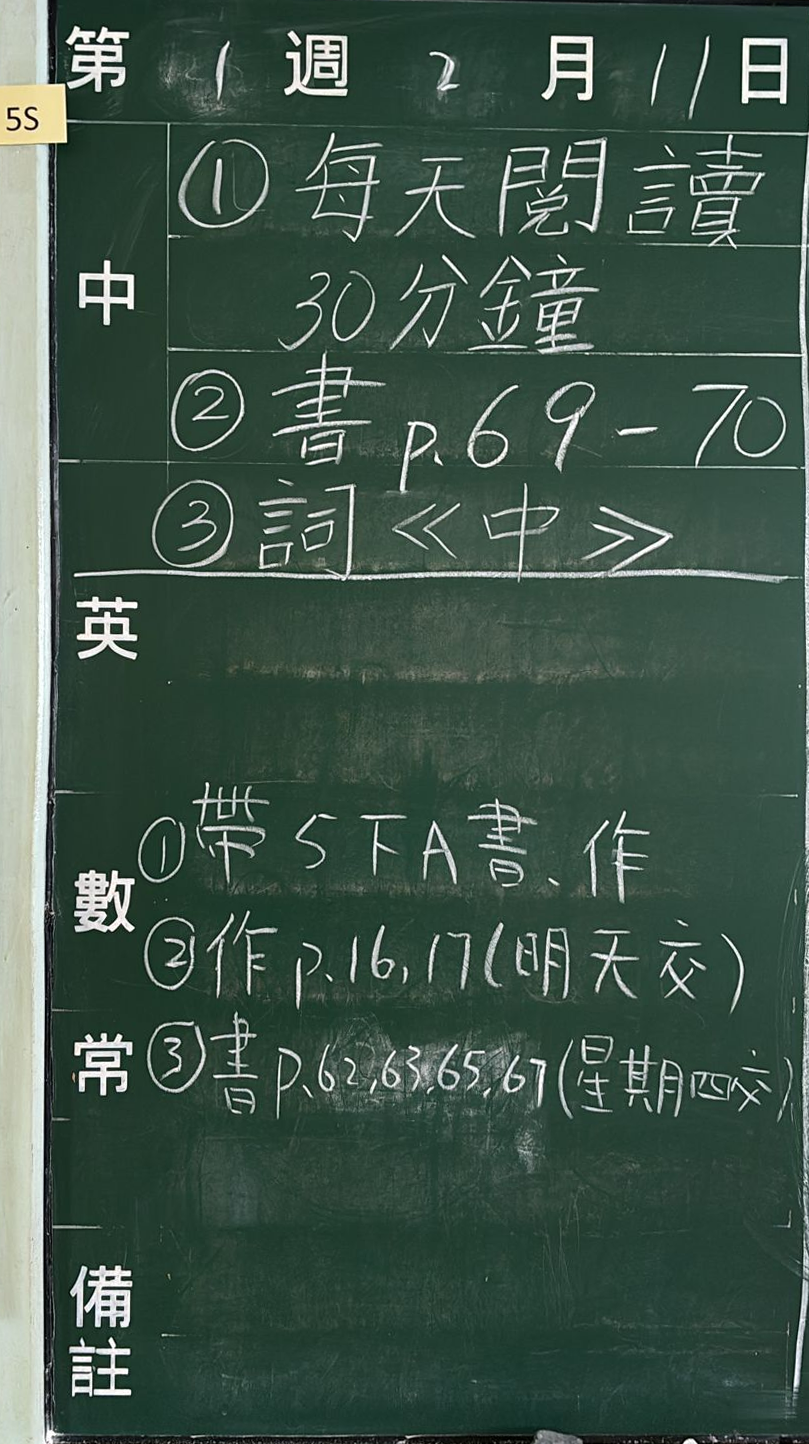 第 1 週 2 月 11 日
5S
中
① 每天閱讀
30分鐘
② 書 p.69-70
③ 詞≪中≫
英
數
① 帶5下A書、作
② 作 p.16,17(明天交)
常
③ 書 p.62,63,65,67(星期四交)
備註